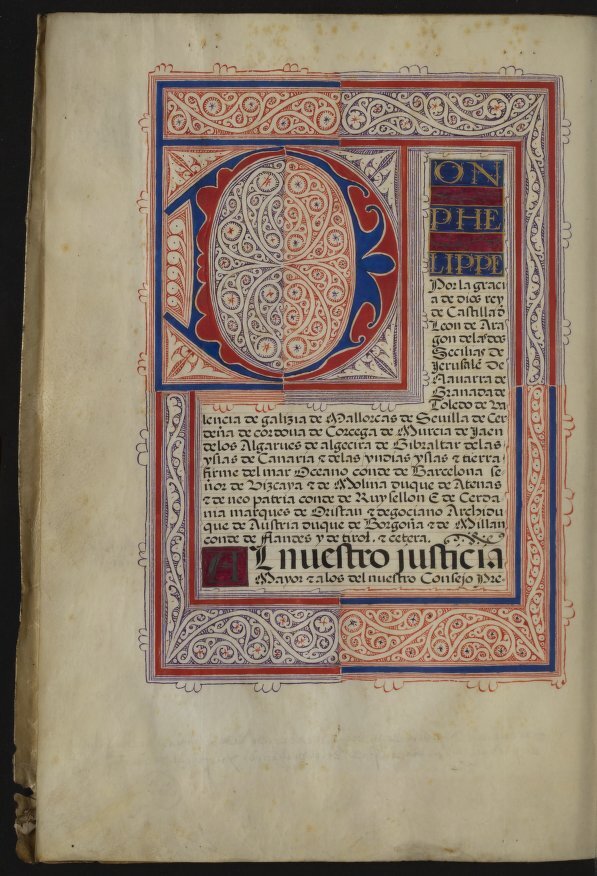 DON
PHE
LIPPE
Por la graci
a de dios rey
de Castilla đ
Leon de Ara
gon delas dos
Secilias de
Jerusalē de
Nauarra de
Granada de
Toledo de Va
lencia de galizia de Mallorcas de Seuilla de Cer
deña de cordoua de Corcega de Murcia de Jaen
de los Algarues de algecira de Gibraltar de las
yslas de Canaria & delas yndias yslas & tierra
firme del mar Oceano conde de Barcelona se
ñor de Vizcaya & de Molina duque de Atenas
& de neo patria conde de Ruysellon E de Cerda
nia marques de Oristan & degociano Archidu
que de Austria duque de Borgoña & de Millan
conde de flandes y de tirol. & cetera.
AL nuestro justicia
Mayor & alos del nuestro Consejo Pre-